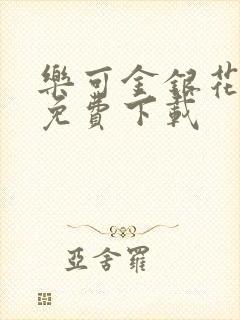 樂可金銀花
免費下載
亞舍羅